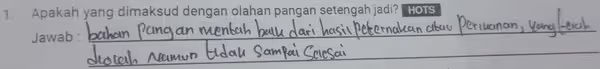 1. Apakah yang dimaksud dengan olahan pangan setengah jadi? HOTS
Jawab : bahan pangan mentah baik dari hasil Peternakan atau Perikanan, yang telah
diolah Namun tidak sampai selesai